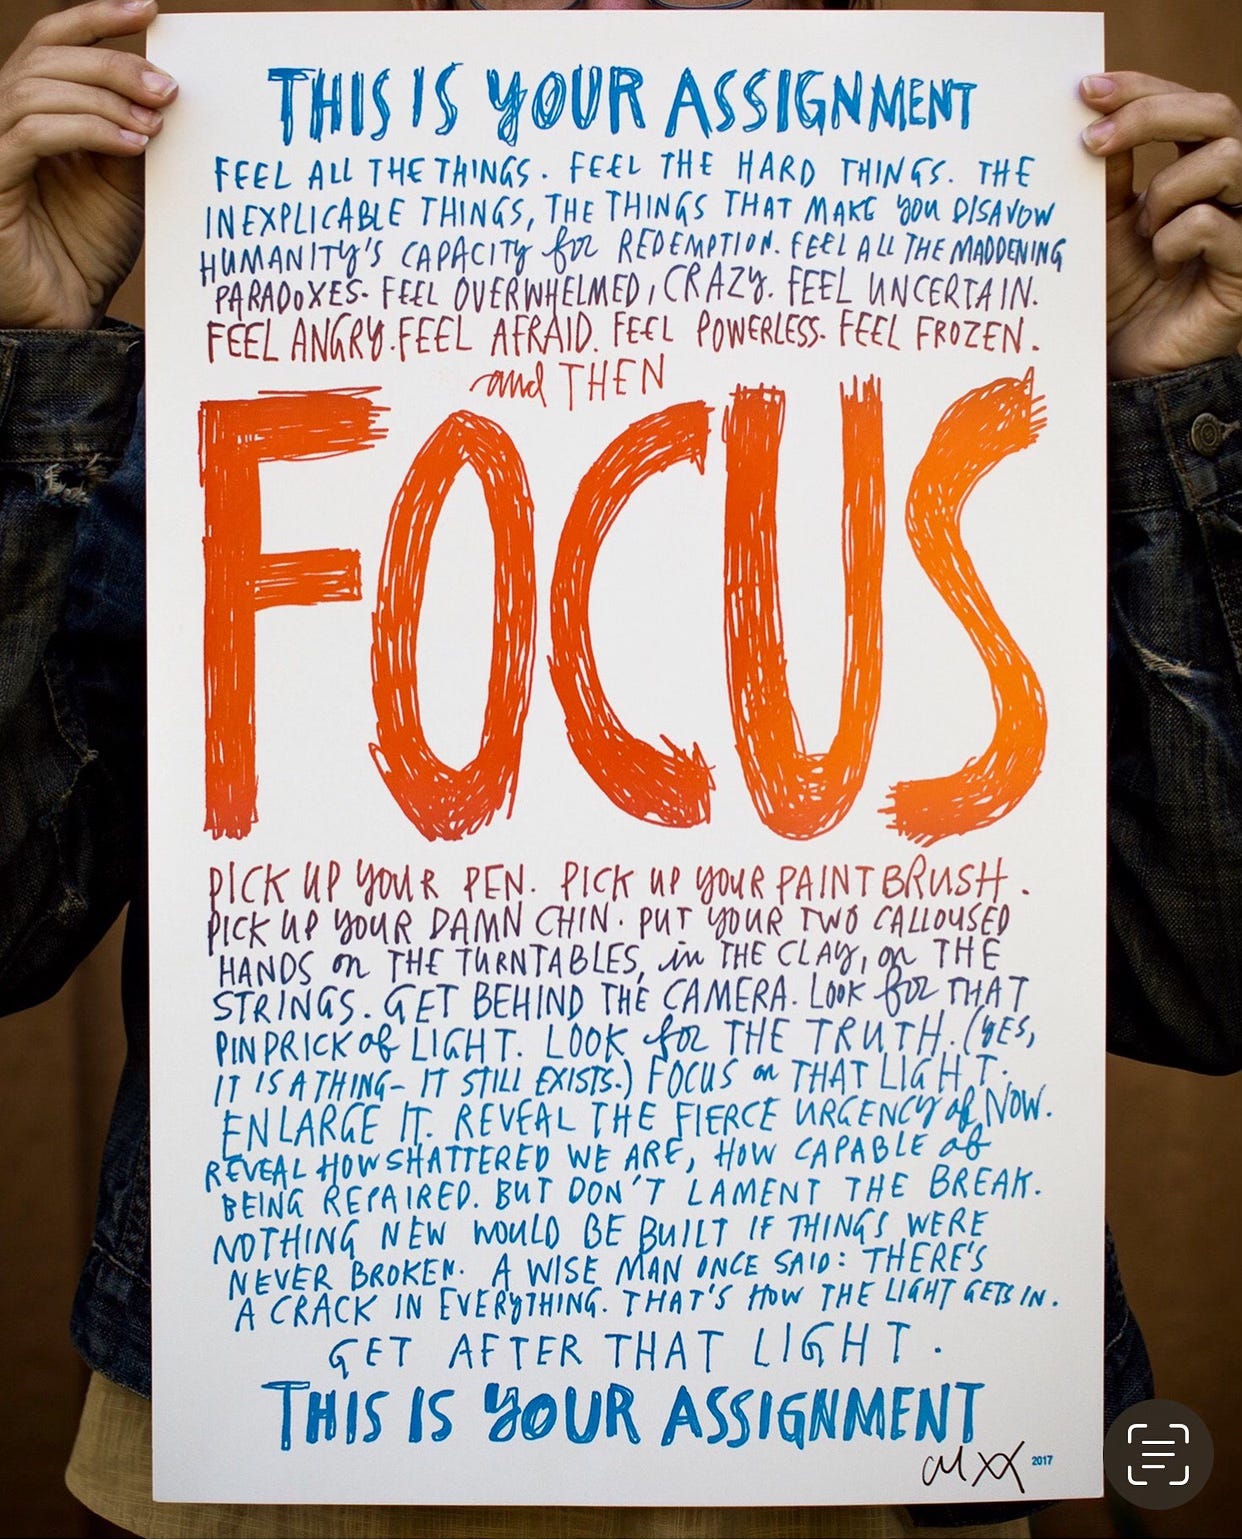 THIS IS YOUR ASSIGNMENT
FEEL ALL THE THINGS. FEEL THE HARD THINGS. THE
INEXPLICABLE THINGS, THE THINGS THAT MAKE YOU DISAVOW
HUMANITY'S CAPACITY for REDEMPTION. FEEL ALL THE MADDENING
PARADOXES. FEEL OVERWHELMED, CRAZY. FEEL UNCERTAIN.
FEEL ANGRY. FEEL AFRAID. FEEL POWERLESS. FEEL FROZEN.
and THEN
FOCUS
PICK UP YOUR PEN. PICK UP YOUR PAINTBRUSH.
PICK UP YOUR DAMN CHIN. PUT YOUR TWO CALLOUSED
HANDS on THE TURNTABLES, in THE CLAY, on THE
STRINGS. GET BEHIND THE CAMERA. LOOK for THAT
PINPRICK of LIGHT. LOOK for THE TRUTH. (YES,
IT IS A THING– IT STILL EXISTS.) FOCUS on THAT LIGHT.
ENLARGE IT. REVEAL THE FIERCE URGENCY of NOW.
REVEAL HOW SHATTERED WE ARE, HOW CAPABLE of
BEING REPAIRED. BUT DON'T LAMENT THE BREAK.
NOTHING NEW WOULD BE BUILT IF THINGS WERE
NEVER BROKEN. A WISE MAN ONCE SAID: THERE'S
A CRACK IN EVERYTHING. THAT'S HOW THE LIGHT GETS IN.
GET AFTER THAT LIGHT.
THIS IS YOUR ASSIGNMENT
2017